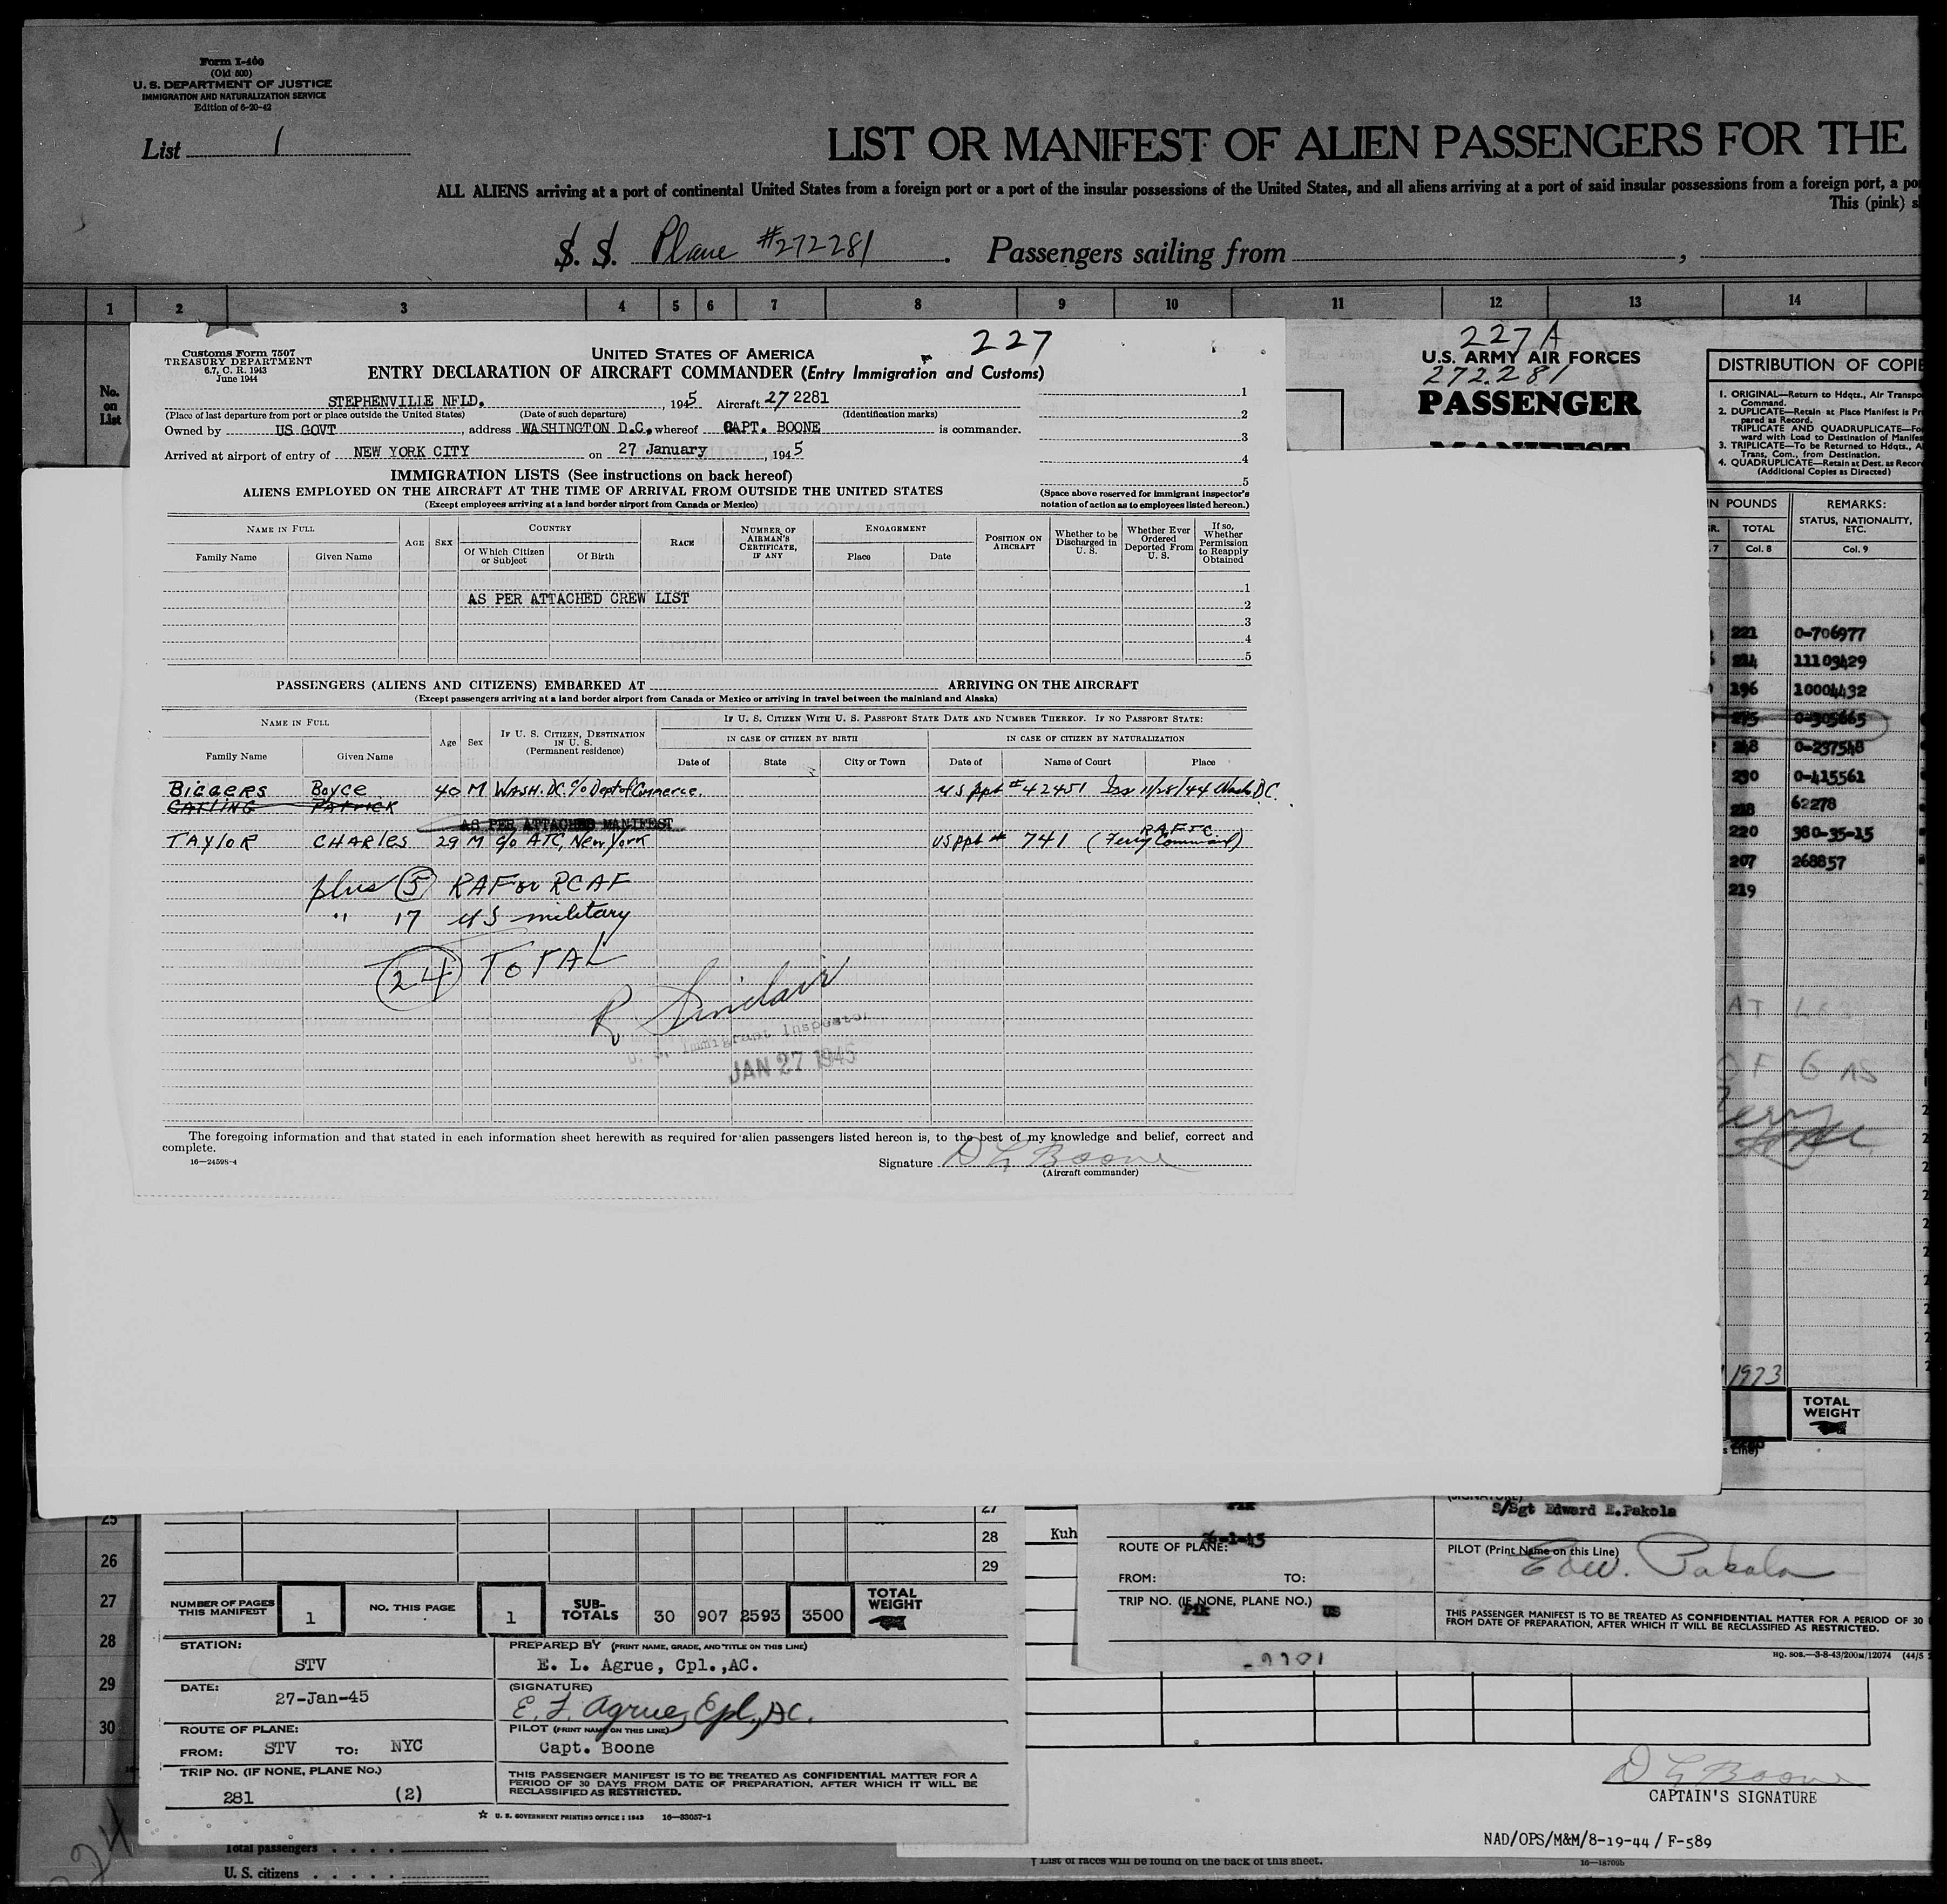 Form I-400
(Old 500)
U. S. DEPARTMENT OF JUSTICE
IMMIGRATION AND NATURALIZATION SERVICE
Edition of 6-20-42
List 1
LIST OR MANIFEST OF ALIEN PASSENGERS FOR THE
ALL ALIENS arriving at a port of continental United States from a foreign port or a port of the insular possessions of the United States, and all aliens arriving at a port of said insular possessions from a foreign port, a
This (pink)
S. S. Plane #272281. Passengers sailing from
1 2 3 4 5 6 7 8 9 10 11 12 13 14
No. on List
Customs Form 7507
TREASURY DEPARTMENT
6.7, C. R. 1943
June 1944
UNITED STATES OF AMERICA
227
ENTRY DECLARATION OF AIRCRAFT COMMANDER (Entry Immigration and Customs)
STEPHENVILLE NFLD. , 1945 Aircraft 27 2281
(Place of last departure from port or place outside the United States) (Date of such departure) (Identification marks)
Owned by US GOVT, address WASHINGTON D.C, whereof CAPT. BOONE is commander.
Arrived at airport of entry of NEW YORK CITY on 27 January, 1945
1
2
3
4
5
IMMIGRATION LISTS (See instructions on back hereof)
ALIENS EMPLOYED ON THE AIRCRAFT AT THE TIME OF ARRIVAL FROM OUTSIDE THE UNITED STATES
(Except employees arriving at a land border airport from Canada or Mexico)
(Space above reserved for immigrant inspector's notation of action as to employees listed hereon.)
NAME IN FULL AGE SEX COUNTRY RACE NUMBER OF AIRMAN'S CERTIFICATE, IF ANY ENGAGEMENT POSITION ON AIRCRAFT Whether to be Discharged in U. S. Whether Ever Ordered Deported From U. S. If so, Whether Permission to Reapply Obtained
Family Name Given Name Of Which Citizen or Subject Of Birth Place Date
1
AS PER ATTACHED CREW LIST
2
3
4
5
PASSENGERS (ALIENS AND CITIZENS) EMBARKED AT ARRIVING ON THE AIRCRAFT
(Except passengers arriving at a land border airport from Canada or Mexico or arriving in travel between the mainland and Alaska)
NAME IN FULL Age Sex IF U. S. CITIZEN, DESTINATION IN U. S. (Permanent residence) IF U. S. CITIZEN WITH U. S. PASSPORT STATE DATE AND NUMBER THEREOF. IF NO PASSPORT STATE:
IN CASE OF CITIZEN BY BIRTH IN CASE OF CITIZEN BY NATURALIZATION
Family Name Given Name Date of State City or Town Date of Name of Court Place
BIGGERS Boyce 40 M WASH. DC. c/o Dept of Commerce. US ppt #42451 Iss 11/28/44 Wash DC.
PATRICK
AS PER ATTACHED MANIFEST
TAYLOR CHARLES 29 M c/o ATC, New York US ppt # 741 (RAFTC Ferry Command)
plus 5 RAF or RCAF
" 17 US military
24 TOTAL
R Sinclair
U. S. Immigrant Inspector
JAN 27 1945
The foregoing information and that stated in each information sheet herewith as required for alien passengers listed hereon is, to the best of my knowledge and belief, correct and complete.
16—24598-4
Signature D L Boone
(Aircraft commander)
227A
U.S. ARMY AIR FORCES
272.281
PASSENGER
MANIFEST
DISTRIBUTION OF
1. ORIGINAL—Return to Hdqts., Air
Command.
2. DUPLICATE—Retain at Place Manifest is
pared as Record.
TRIPLICATE AND QUADRUPLICATE—
ward with Load to Destination of
3. TRIPLICATE—To be Returned to Hdqts.,
Trans, Com., from Destination.
4. QUADRUPLICATE—Retain at Dest. as
(Additional Copies as Directed)
IN POUNDS REMARKS:
TOTAL STATUS, NATIONALITY, ETC.
7 Col. 8 Col. 9
221 0-706977
11109429
196 10004432
0-305665
0-237548
230 0-415561
62278
220 380-35-15
207 268857
219
AT
OF GAS
1973
TOTAL WEIGHT
25
26
27
28
29
30
27
28
29
Kuh
NUMBER OF PAGES THIS MANIFEST 1 NO. THIS PAGE 1 SUB-TOTALS 30 907 2593 3500 TOTAL WEIGHT
STATION: STV
PREPARED BY (PRINT NAME, GRADE, AND TITLE ON THIS LINE)
E. L. Agrue, Cpl.,AC.
DATE: 27-Jan-45
(SIGNATURE)
E. L. Agrue, Cpl, AC.
ROUTE OF PLANE:
FROM: STV TO: NYC
PILOT (PRINT NAME ON THIS LINE)
Capt. Boone
TRIP NO. (IF NONE, PLANE NO.)
281 (2)
THIS PASSENGER MANIFEST IS TO BE TREATED AS CONFIDENTIAL MATTER FOR A PERIOD OF 30 DAYS FROM DATE OF PREPARATION, AFTER WHICH IT WILL BE RECLASSIFIED AS RESTRICTED.
☆ U. S. GOVERNMENT PRINTING OFFICE : 1943 16—33057-1
Total passengers
U. S. citizens
Pik
(SIGNATURE)
S/Sgt Edward E.Pakola
ROUTE OF PLANE:
PILOT (Print Name on this Line)
Edw. Pakola
FROM: TO:
TRIP NO. (IF NONE, PLANE NO.)
Pik US
THIS PASSENGER MANIFEST IS TO BE TREATED AS CONFIDENTIAL MATTER FOR A PERIOD OF 30
FROM DATE OF PREPARATION, AFTER WHICH IT WILL BE RECLASSIFIED AS RESTRICTED.
HQ. SOS.—3-8-43/200M/12074 (44/5
D L Boone
CAPTAIN'S SIGNATURE
NAD/OPS/M&M/8-19-44 / F-589
† List of races will be found on the back of this sheet.
224